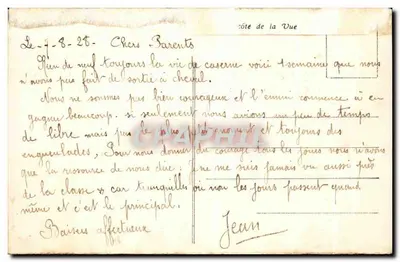 côté de la Vue
Le 7-8-28- Chers Parents
Rien de neuf toujours la vie de caserne voici 1 semaine que nous
n'avons pas fait de sortie à cheval.
Nous ne sommes pas bien courageux et l'ennui commence à en
gagner beaucoup. si seulement nous avions un peu de temps
de libre mais pas le et toujours des
engueulades, Pour nous donner du courage tous les jours nous n'avons
que la ressource de nous dire: je ne me suis jamais vu aussi près
de la classe & car tranquilles ou non les jours passent quand
même et c'est le principal.
Baisers affectueux
Jean